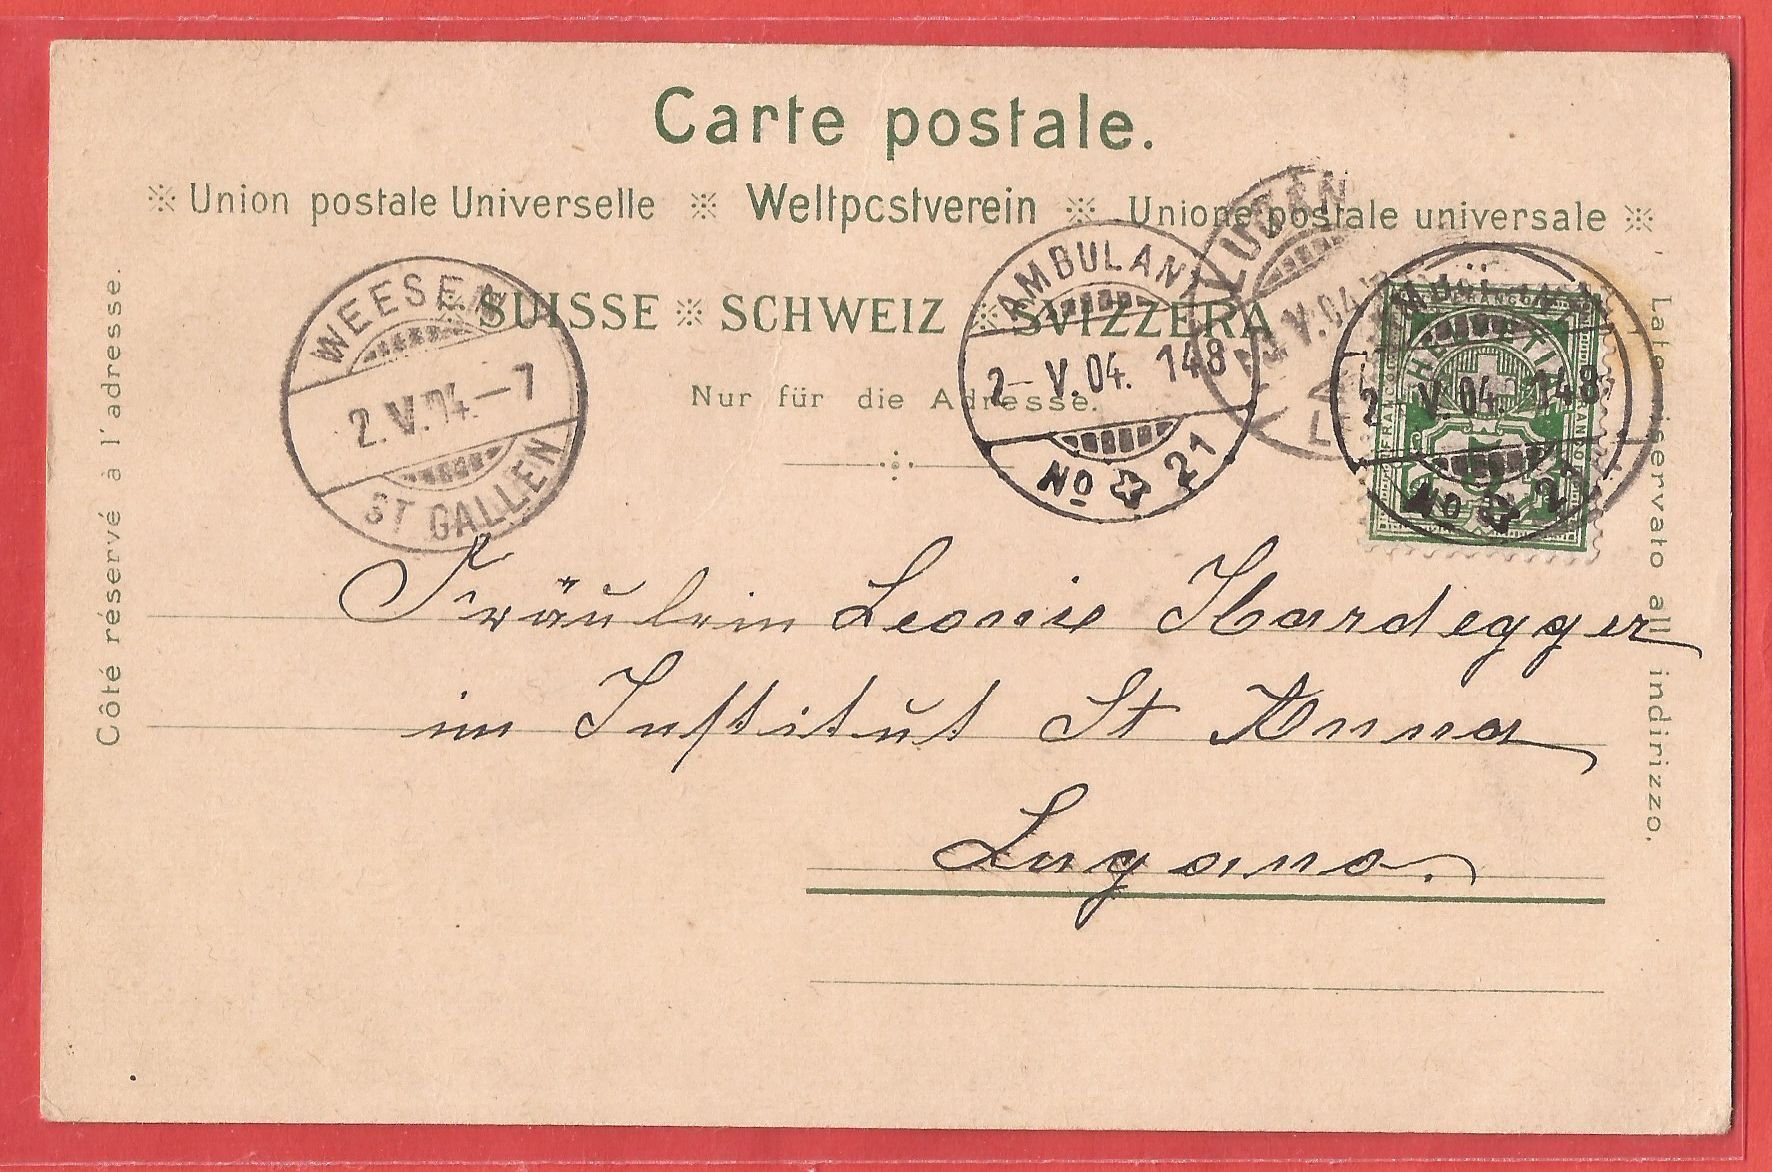 Carte postale.
Union postale Universelle ※ Weltpostverein ※ Unione postale universale
SUISSE ※ SCHWEIZ ※ SVIZZERA
Nur für die Adresse.
Côté réservé à l'adresse.
Lato riservato all indirizzo.
WEESEN
2.V.04.–7
ST GALLEN
AMBULANT
2– V.04. 148
No 21
AMBULANT
2 V.04. 148
No 21
V.04
FRANCO
HELVETIA
FRANCO
FRANCO
5
Fräulein Leonie Hardegger
im Institut St Anna
Lugano.